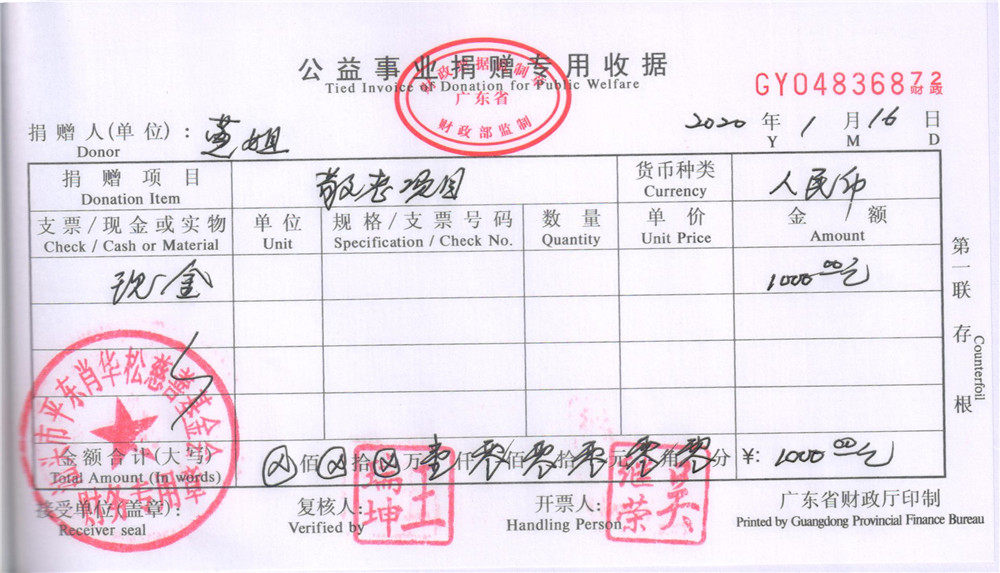 公益事业捐赠专用收据
Tied Invoice of Donation for Public Welfare
财政票据监制章
广东省
财政部监制
GY04836872
财政
捐赠人(单位): 姐
Donor
2020 年 1 月 16 日
Y M D
捐赠项目 敬老项目 货币种类 人民币
Donation Item Currency
支票/现金或实物 单位 规格/支票号码 数量 单价 金额
Check / Cash or Material Unit Specification / Check No. Quantity Unit Price Amount
现金 1000.00元
金额合计(大写) 佰 拾 万 壹 仟 零 佰 零 拾 零 元 零 角 零 分 ¥: 1000.00元
Total Amount (In words)
接受单位(盖章): 复核人: 开票人: 广东省财政厅印制
Receiver seal Verified by Handling Person Printed by Guangdong Provincial Finance Bureau
市平东肖华松慈善基金会
财务专用章
王瑞坤
吴继荣
第一联 存根
Counterfoil